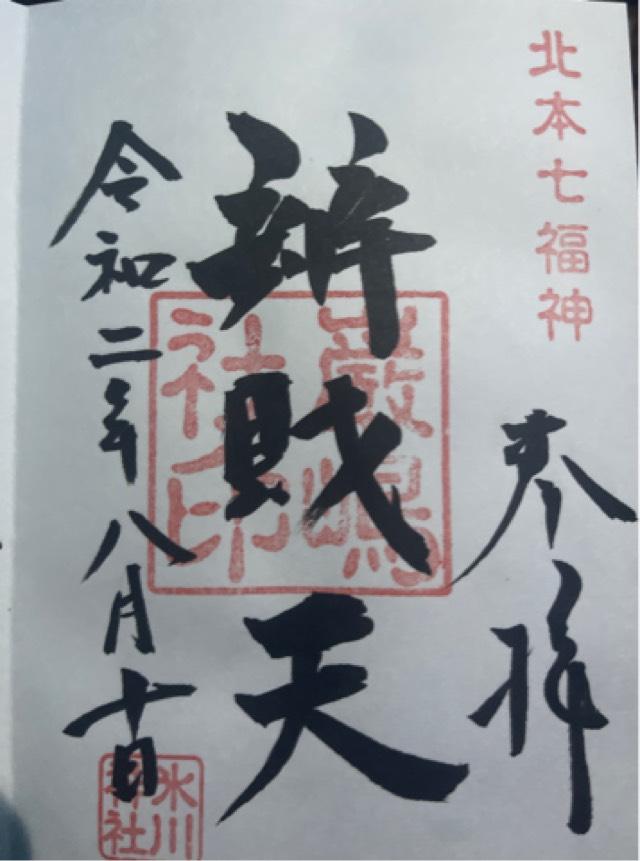 北本七福神
奉拝
辨財天
厳嶋
社印
令和二年八月十日
氷川
神社